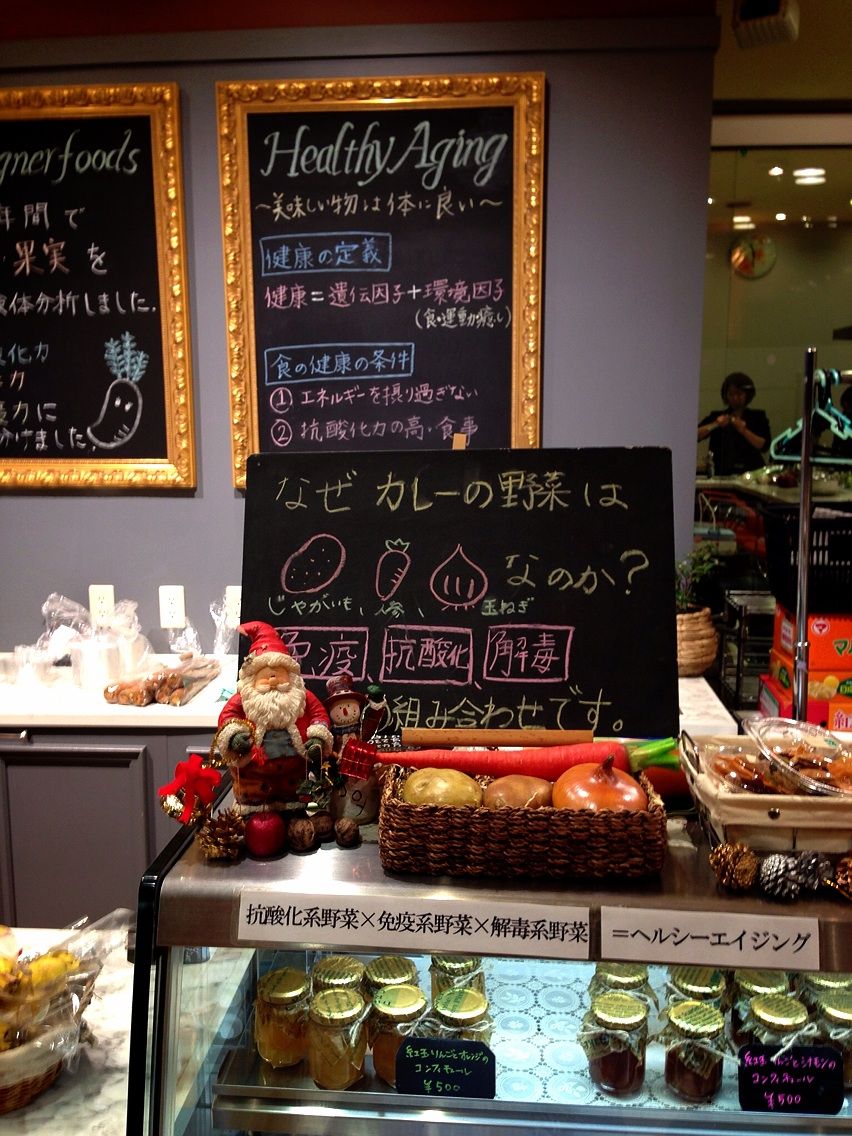 gnerfoods
年間で
果実を
体分析しました.
化力
力
力に
分けました.
Healthy Aging
〜美味しい物は体に良い〜
健康の定義
健康=遺伝因子+環境因子
(食・運動・癒し)
食の健康の条件
① エネルギーを摂り過ぎない
② 抗酸化力の高い食事
なぜ カレーの野菜は
なのか?
じゃがいも、人参、玉ねぎ
免疫、抗酸化、解毒
の組み合わせです。
抗酸化系野菜×免疫系野菜×解毒系野菜
=ヘルシーエイジング
紅玉りんごとオレンジの
コンフィチュール
¥500
紅玉りんごとシナモンの
コンフィチュール
¥500